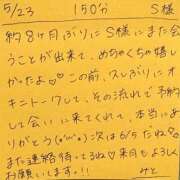 5/23 150分 S様
約8ヶ月ぶりにS様にまた会
うことが出来て、めちゃくちゃ嬉し
かったよ♡♡この前、久しぶりにオ
キニトークして、その流れで予約
して会いに来てくれて、本当にあ
りがとう(*´ω`*)次は6/5だね♡
また連絡待ってるね♡来月もよろしく
お願いします!!
みと